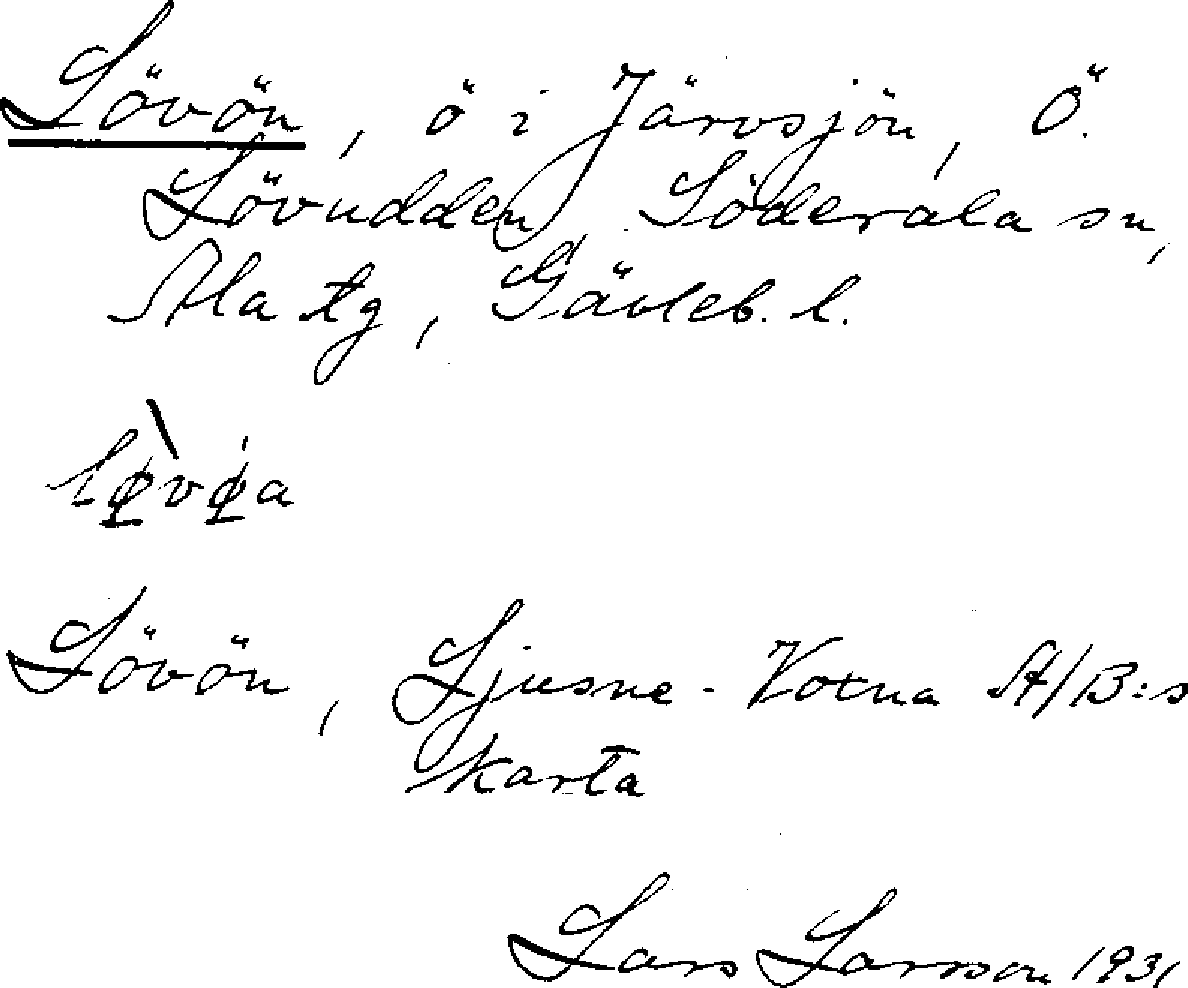 Lövön, ö i Järvsjön, Ö.
Lövudden, Söderala sn,
Ala tg, Gävleb. l.
lø̀vø̀a
Lövön, Ljusne-Voxna A/B:s
karta
Lars Larsson 1931